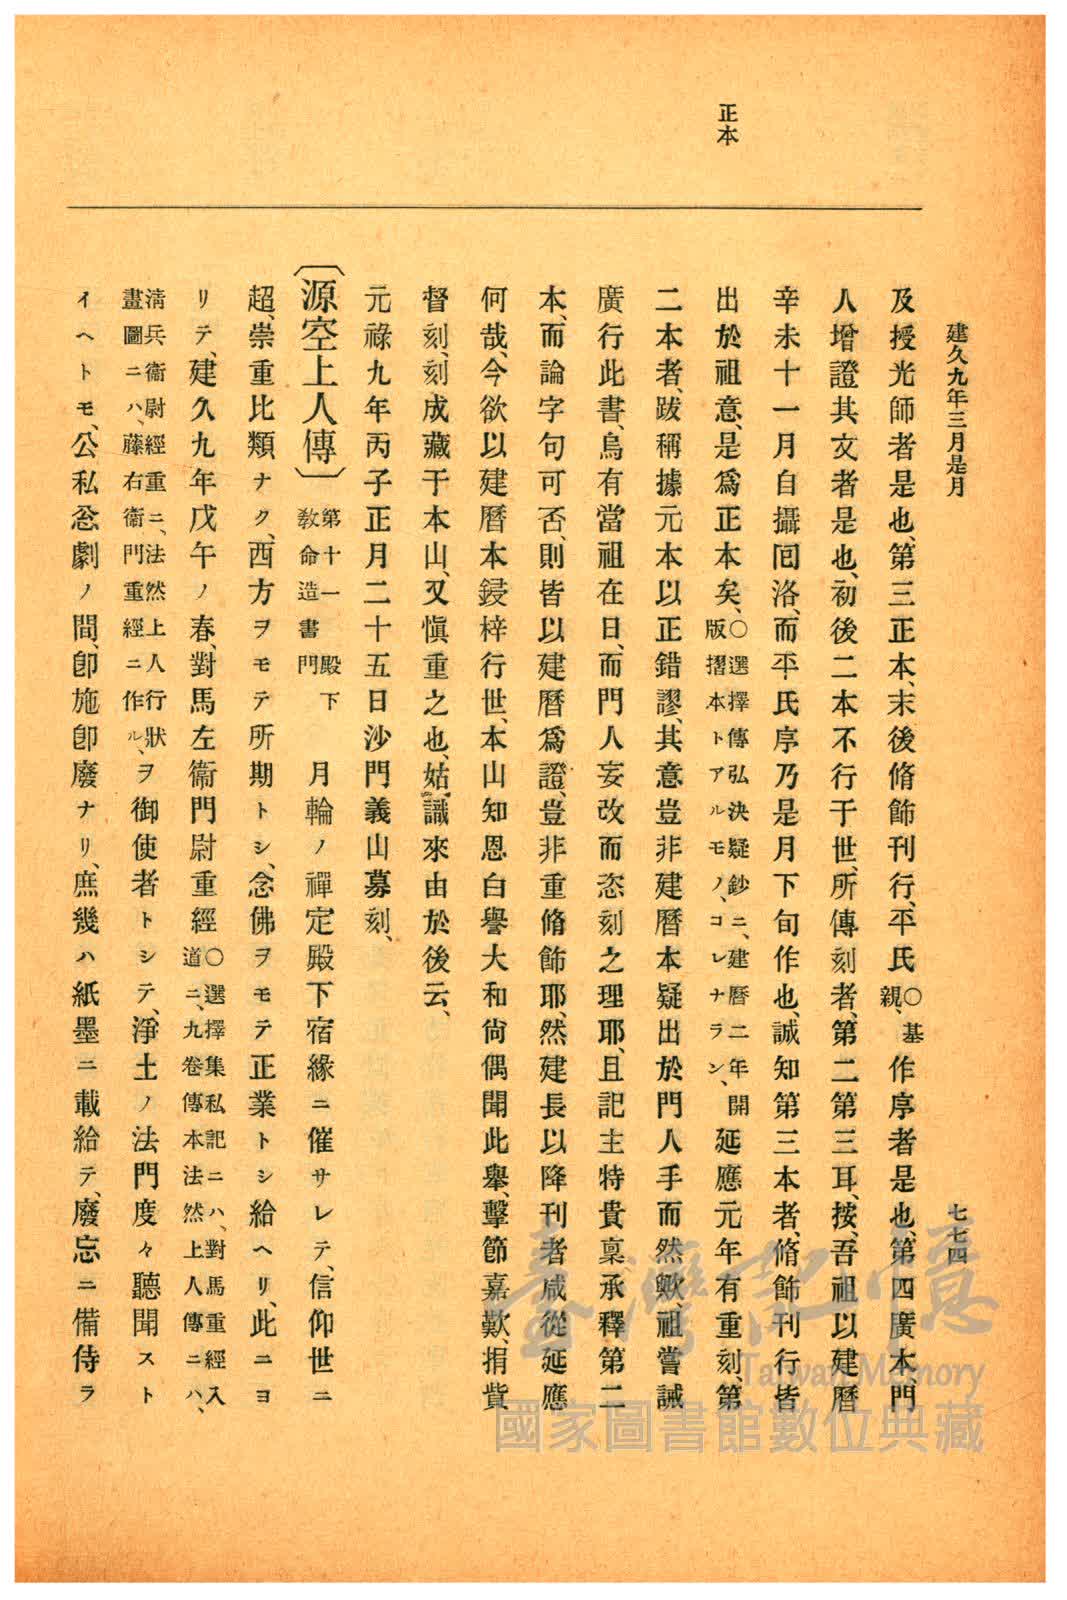 建久九年三月是月
七七四
正本
及授光師者是也、第三正本、末後脩飾刊行、平氏〇基親、作序者是也、第四廣本門
人增證其文者是也、初後二本不行于世、所傳刻者、第二第三耳、按、吾祖以建曆
辛未十一月自攝囘洛、而平氏序乃是月下旬作也、誠知第三本者、脩飾刊行皆
出於祖意、是爲正本矣、〇選擇傳弘決疑鈔ニ、建曆二年開版摺本トアルモノ、コレナラン、延應元年有重刻、第
二本者、跋稱據元本以正錯謬、其意豈非建曆本疑出於門人手而然歟、祖嘗誡
廣行此書、烏有當祖在日、而門人妄改而恣刻之理耶、且記主特貴稟承釋第二
本、而論字句可否、則皆以建曆爲證、豈非重脩飾耶、然建長以降刊者咸從延應
何哉、今欲以建曆本鋟梓行世、本山知恩白譽大和尙偶聞此擧、擊節嘉歎、捐貲
督刻、刻成藏于本山、又愼重之也、姑識來由於後云、
元祿九年丙子正月二十五日沙門義山募刻、
〔源空上人傳〕第十一殿下敎命造書門 月輪ノ禪定殿下宿緣ニ催サレテ、信仰世ニ
超、崇重比類ナク、西方ヲモテ所期トシ、念佛ヲモテ正業トシ給ヘリ、此ニヨ
リテ、建久九年戊午ノ春、對馬左衞門尉重經〇選擇集私記ニハ、對馬重經入道ニ、九卷傳本法然上人傳ニハ、
淸兵衞尉經重ニ、法然上人行狀畫圖ニハ、藤右衞門重經ニ作ル、ヲ御使者トシテ、淨土ノ法門度々聽聞スト
イヘトモ、公私忩劇ノ間、卽施卽廢ナリ、庶幾ハ紙墨ニ載給テ、廢忘ニ備侍ラ
臺灣記憶
Taiwan Memory
國家圖書館數位典藏